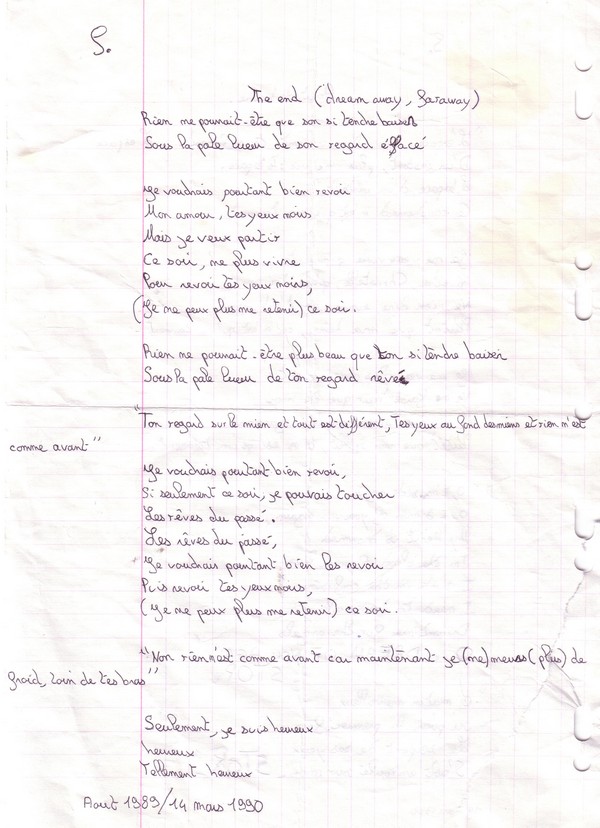 S.
The end (dream away, faraway)
Rien me pourrait-être que son si tendre baiser
Sous la pale lueur de son regard éffacé
Je voudrais pourtant bien revoir
Mon amour, tes yeux noirs
Mais je veux partir
Ce soir, ne plus vivre
Pour revoir tes yeux noirs,
(Je ne peux plus me retenir) ce soir.
Rien me pourrait-être plus beau que ton si tendre baiser
Sous la pale lueur de ton regard rêvé
"Ton regard sur le mien et tout est différent, Tes yeux au fond des miens et rien n'est
comme avant"
Je voudrais pourtant bien revoir,
Si seulement ce soir, je pouvais toucher
Les rêves du passé.
Les rêves du passé,
Je voudrais pourtant bien les revoir
Puis revoir tes yeux noirs,
(Je ne peux plus me retenir) ce soir.
"Non rien n'est comme avant car maintenant je (ne) meurs (plus) de
froid, loin de tes bras"
Seulement, je suis heureux
heureux
Tellement heureux
Aout 1989/14 mars 1990